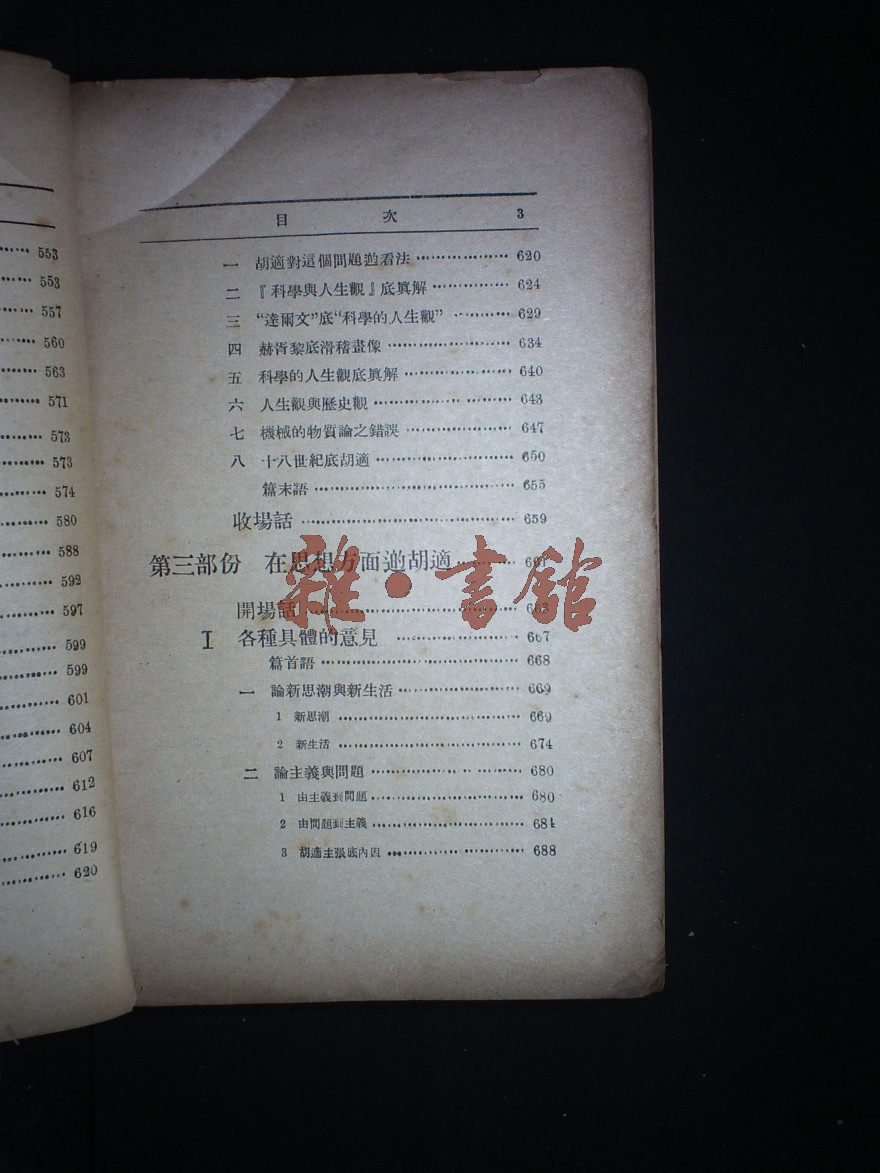 553
553
557
560
563
571
573
573
574
580
588
592
597
599
599
601
604
607
612
616
619
620
目 次 3
一 胡適對這個問題看法 620
二 『科學與人生觀』底眞解 624
三 “達爾文”底“科學的人生觀” 629
四 赫胥黎底滑稽畫像 634
五 科學的人生觀底眞解 640
六 人生觀與歷史觀 643
七 機械的物質論之錯誤 647
八 十八世紀底胡適 650
篇末語 655
收場話 659
第三部份 在思想方面胡適
雜·書館
開場話
I 各種具體的意見 667
篇首語 668
一 論新思潮與新生活 669
1 新思潮 669
2 新生活 674
二 論主義與問題 680
1 由主義到問題 680
2 由問題到主義 684
3 胡適主張底內因 688